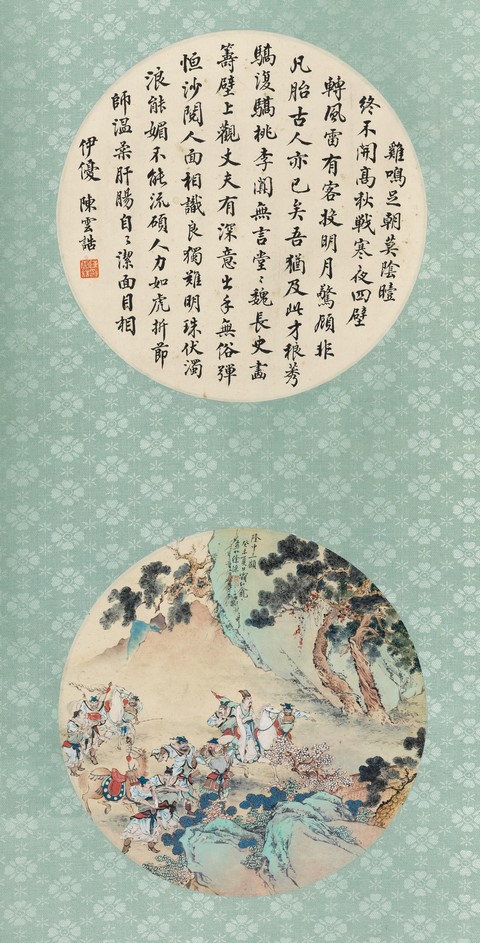 雞鳴足朝莫陰曀
終不開高秋戰寒夜四壁
轉風雷有客投明月驚顧非
凡胎古人亦已矣吾猶及此才稂莠
驕復驕桃李澗無言堂〻魏長史畫
籌壁上觀丈夫有深意出手無俗彈
恒沙閱人面相識良獨難明珠伏濁
浪能媚不能流碩人力如虎折節
師溫柔肝腸自〻潔面目相
伊優 陳雲誥
隆中三顧